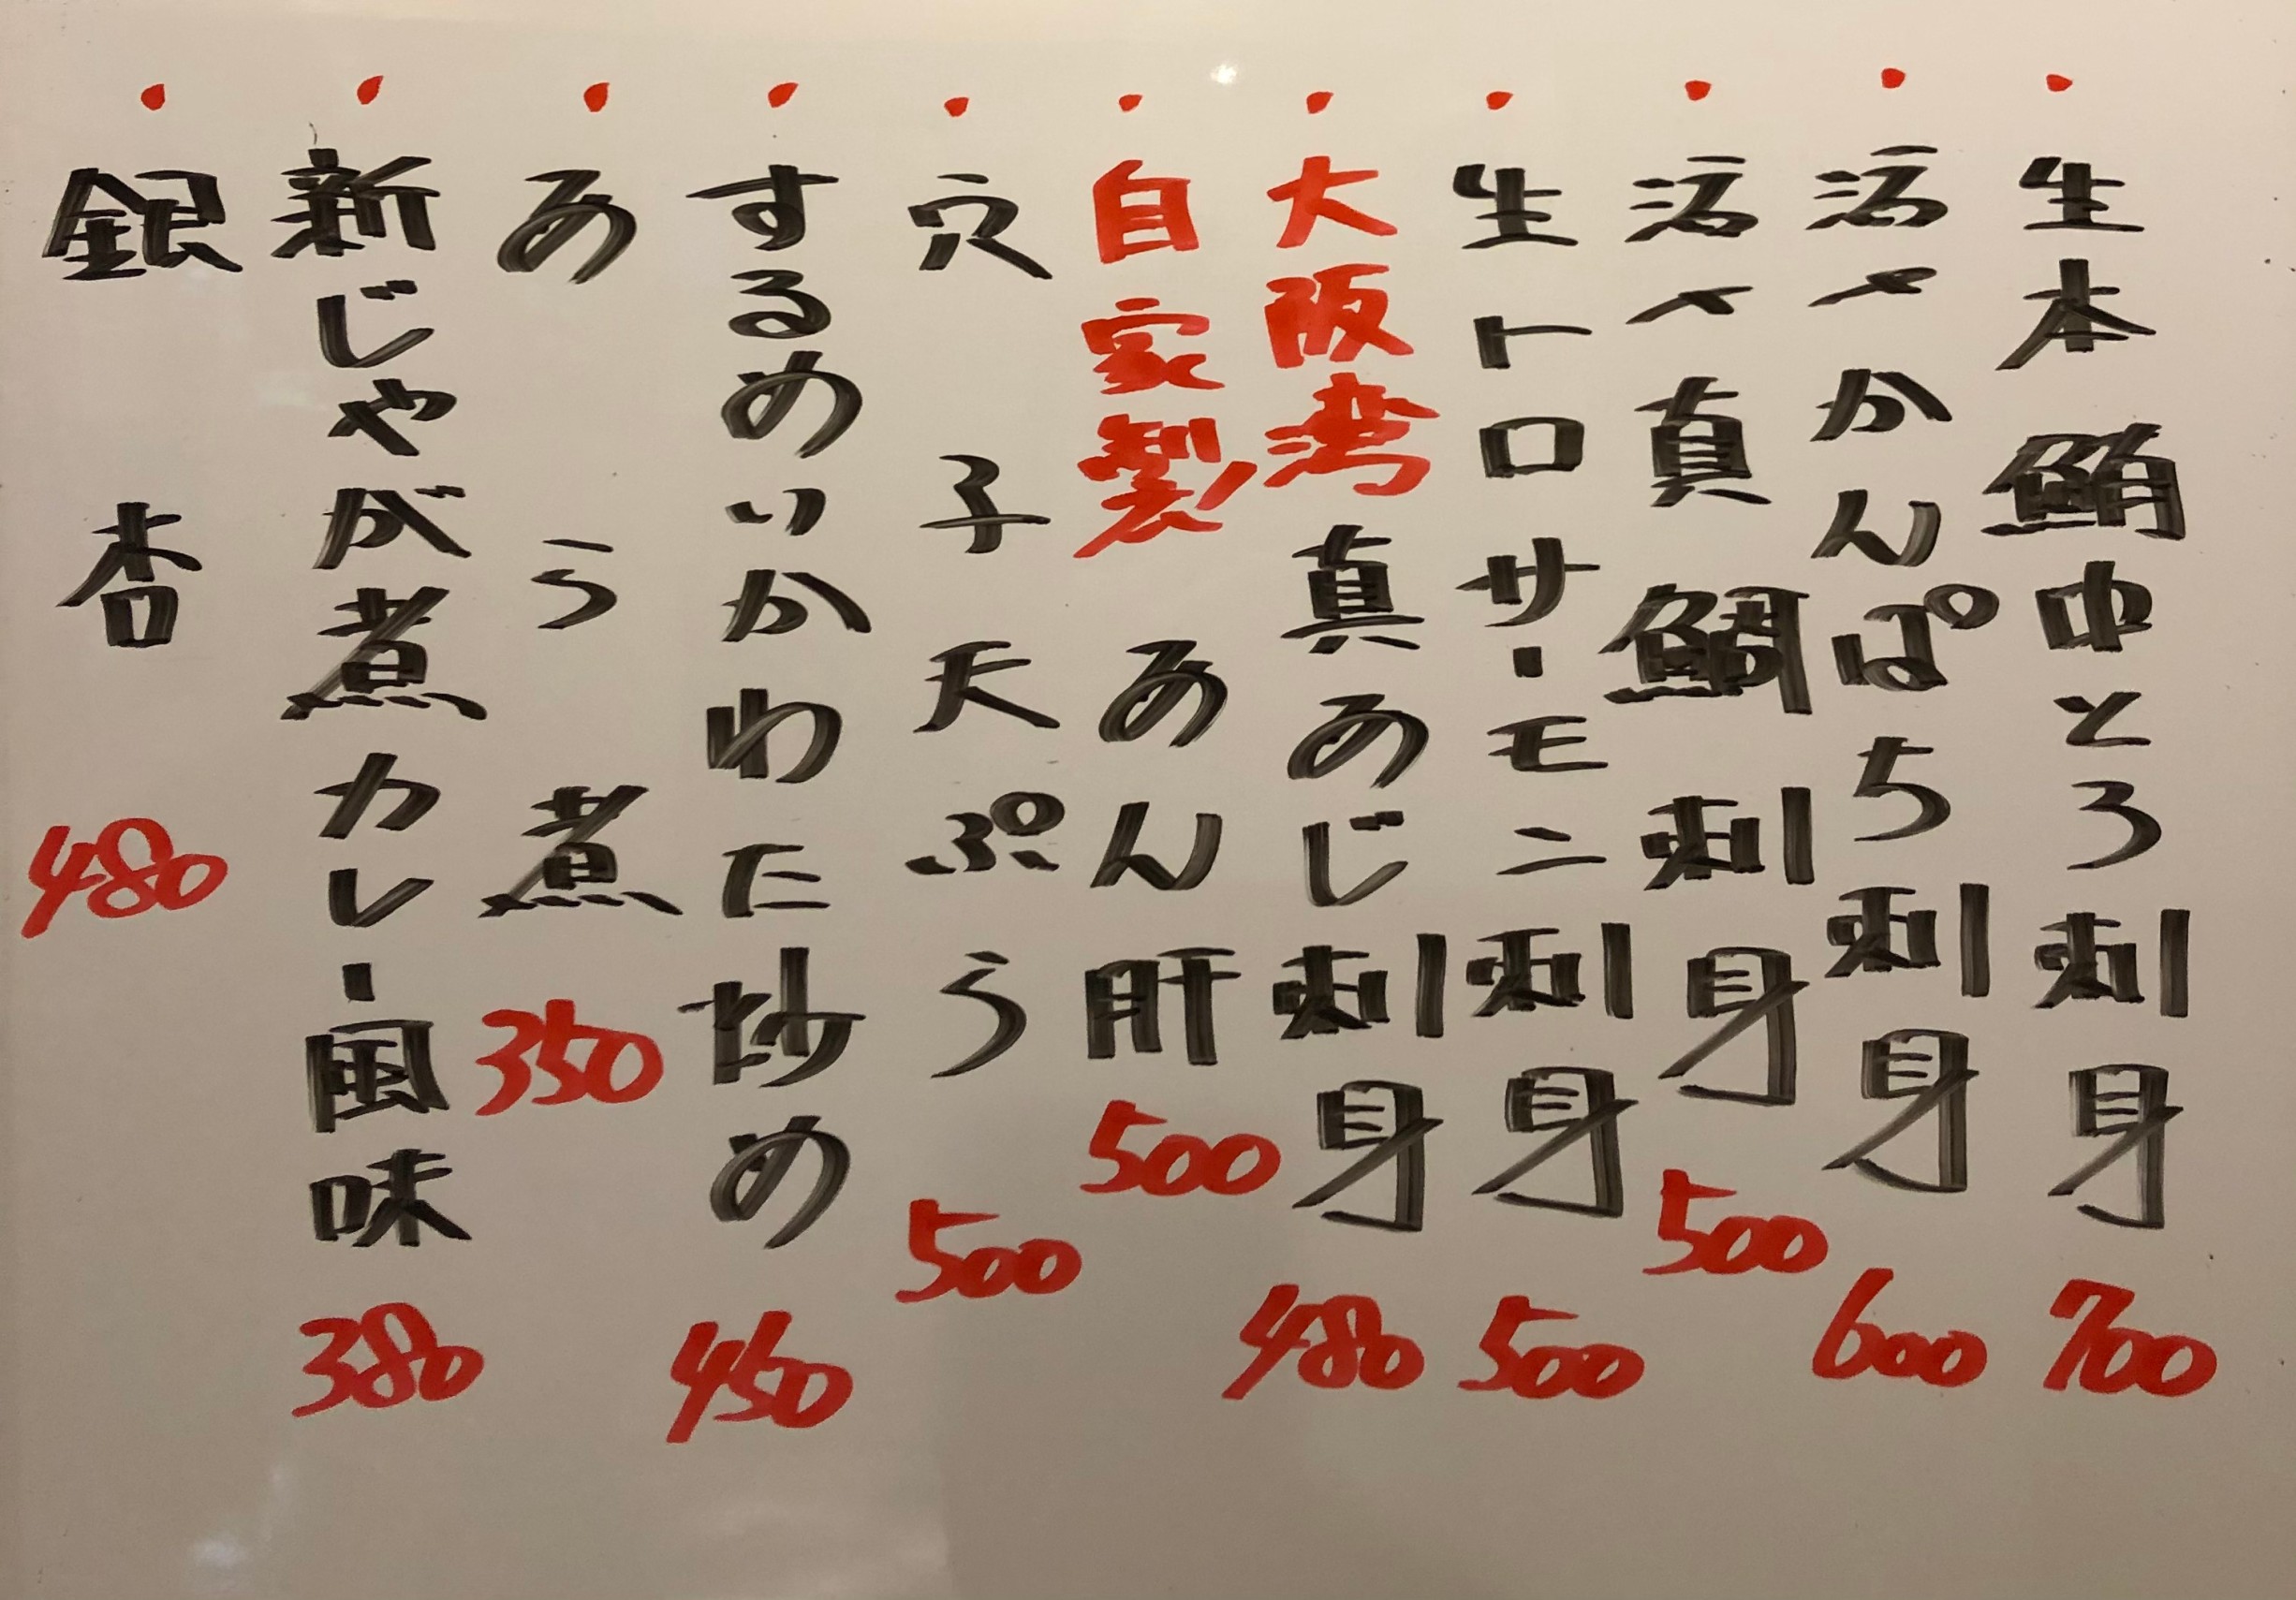 ・生本鮪中とろ刺身 700
・活〆かんぱち刺身 600
・活〆真鯛刺身 500
・生トロサーモン刺身 500
・大阪湾真あじ刺身 480
・自家製あん肝 500
・穴子天ぷら 500
・するめいかわた炒め 450
・あら煮 350
・新じゃが煮カレー風味 380
・銀杏 480